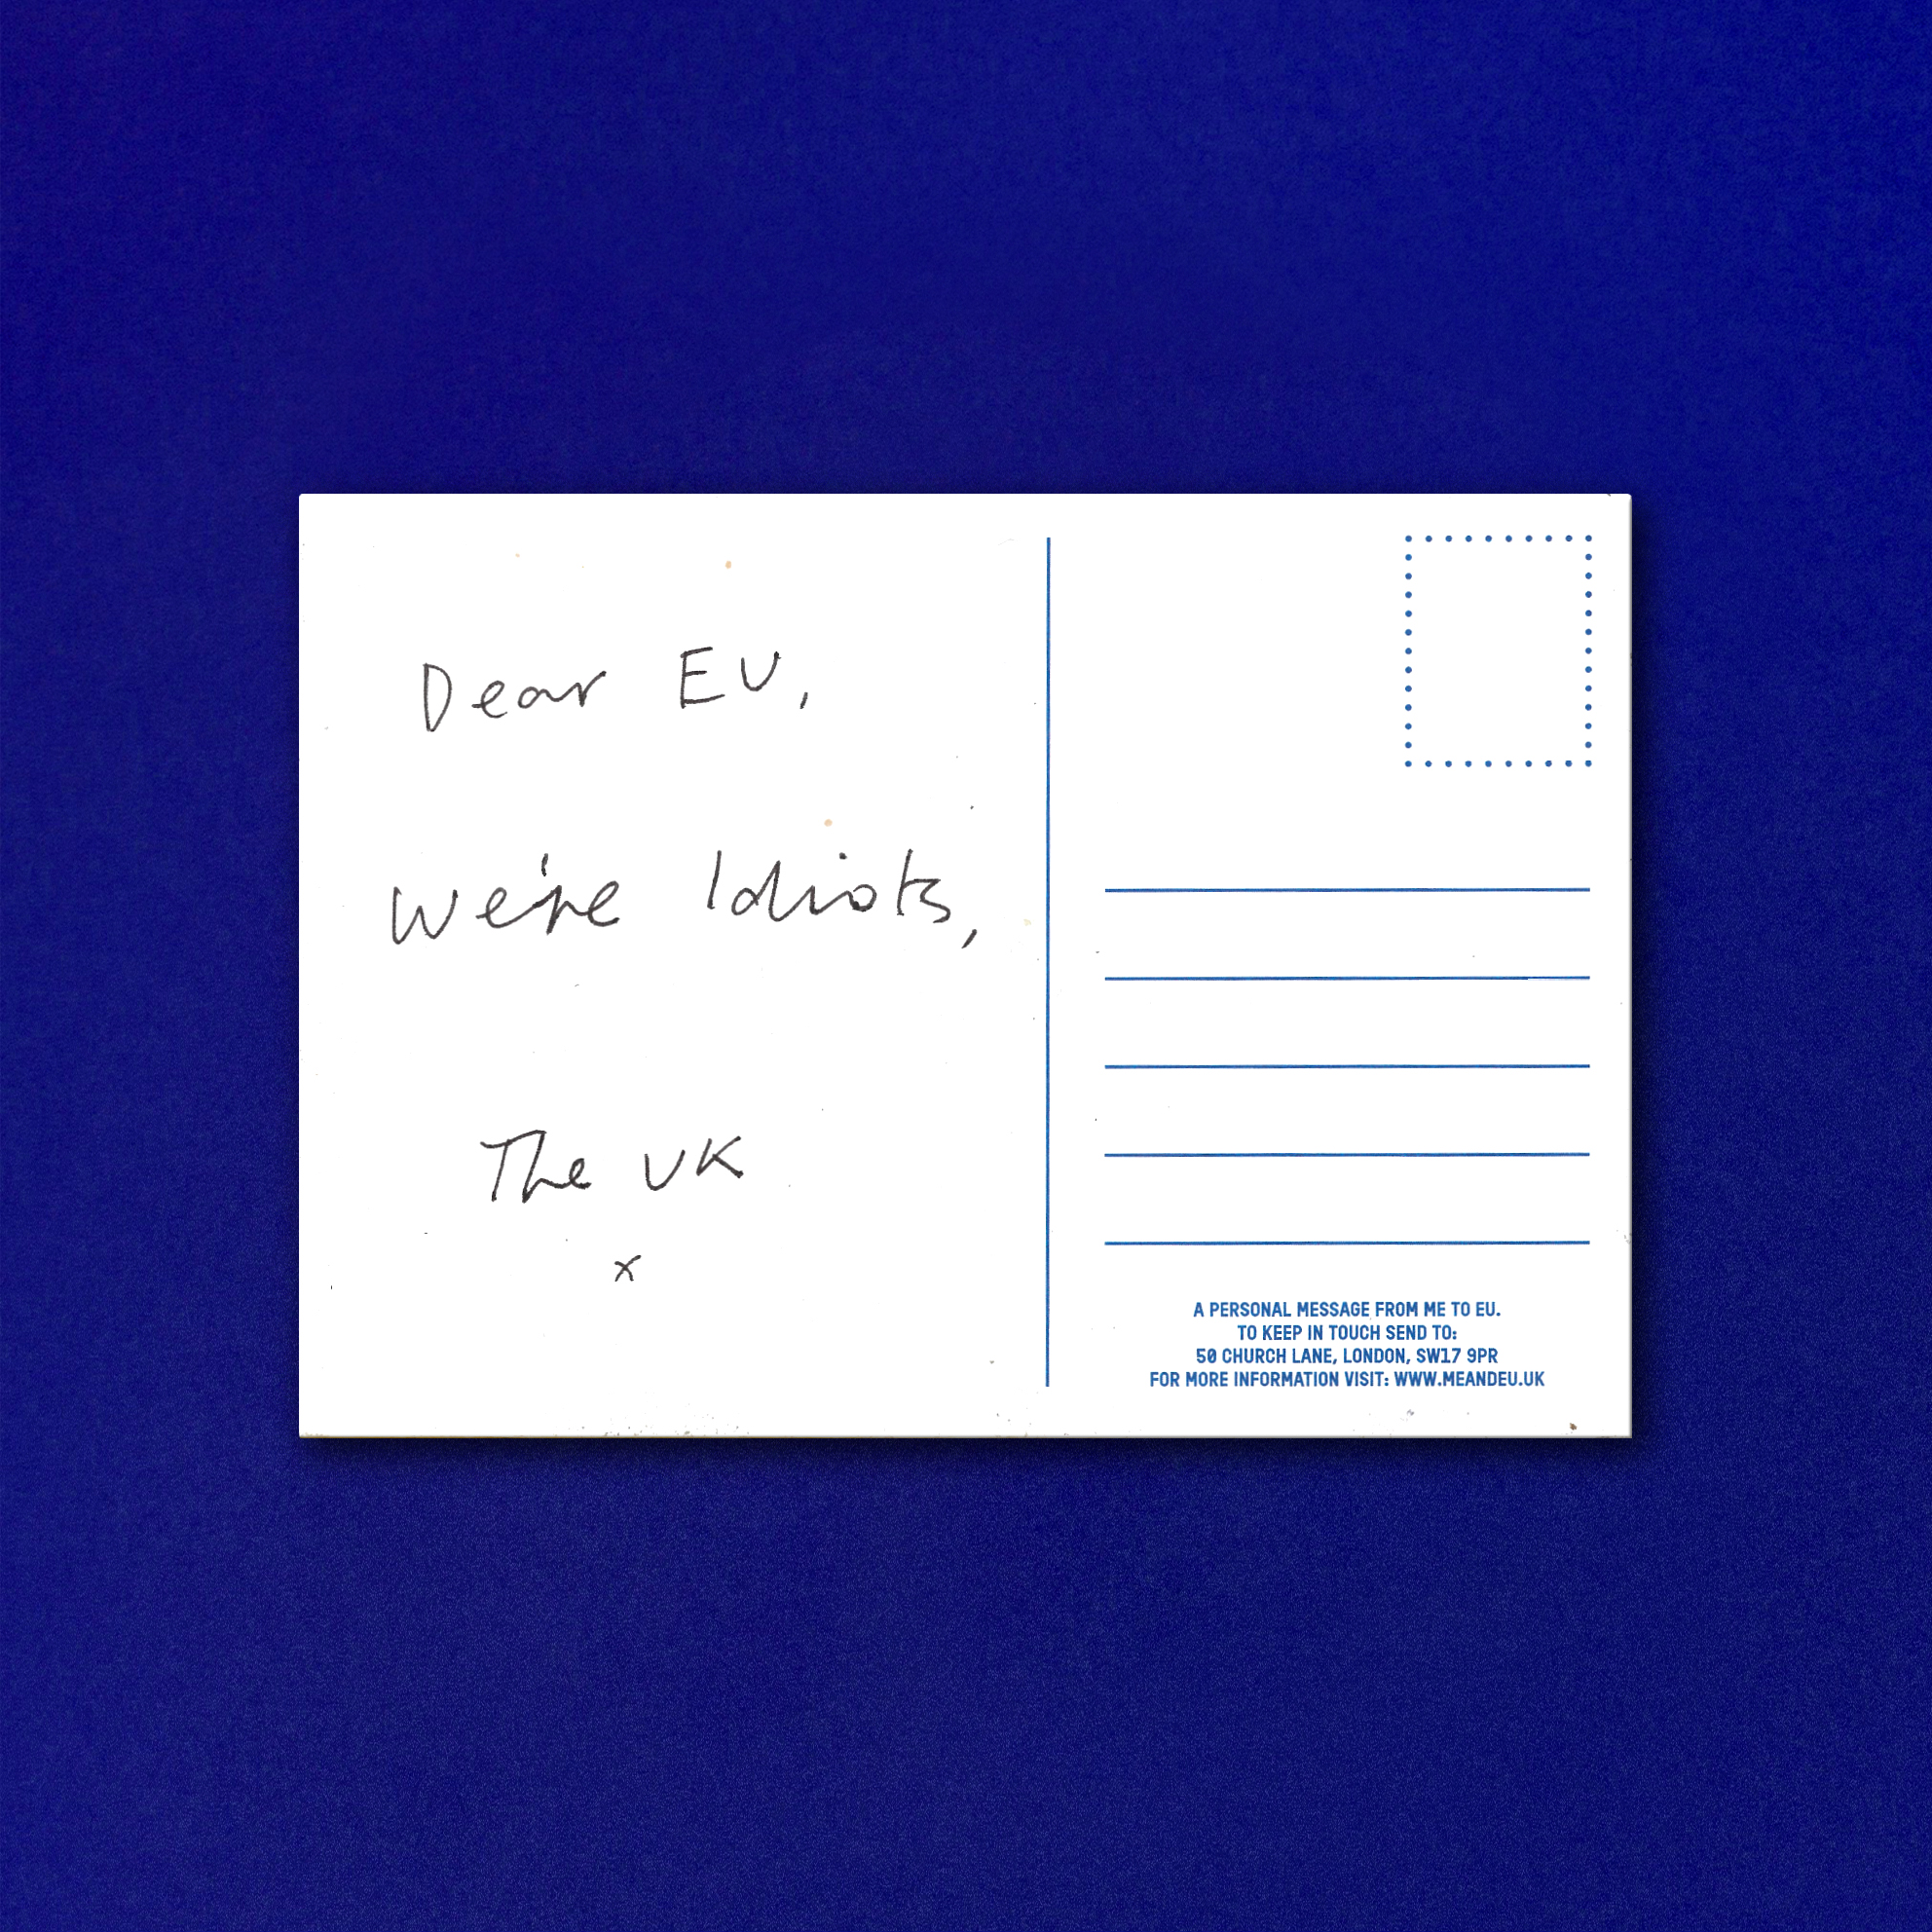 Dear EU,
We're Idiots,
The UK
x
A PERSONAL MESSAGE FROM ME TO EU.
TO KEEP IN TOUCH SEND TO:
50 CHURCH LANE, LONDON, SW17 9PR
FOR MORE INFORMATION VISIT: WWW.MEANDEU.UK